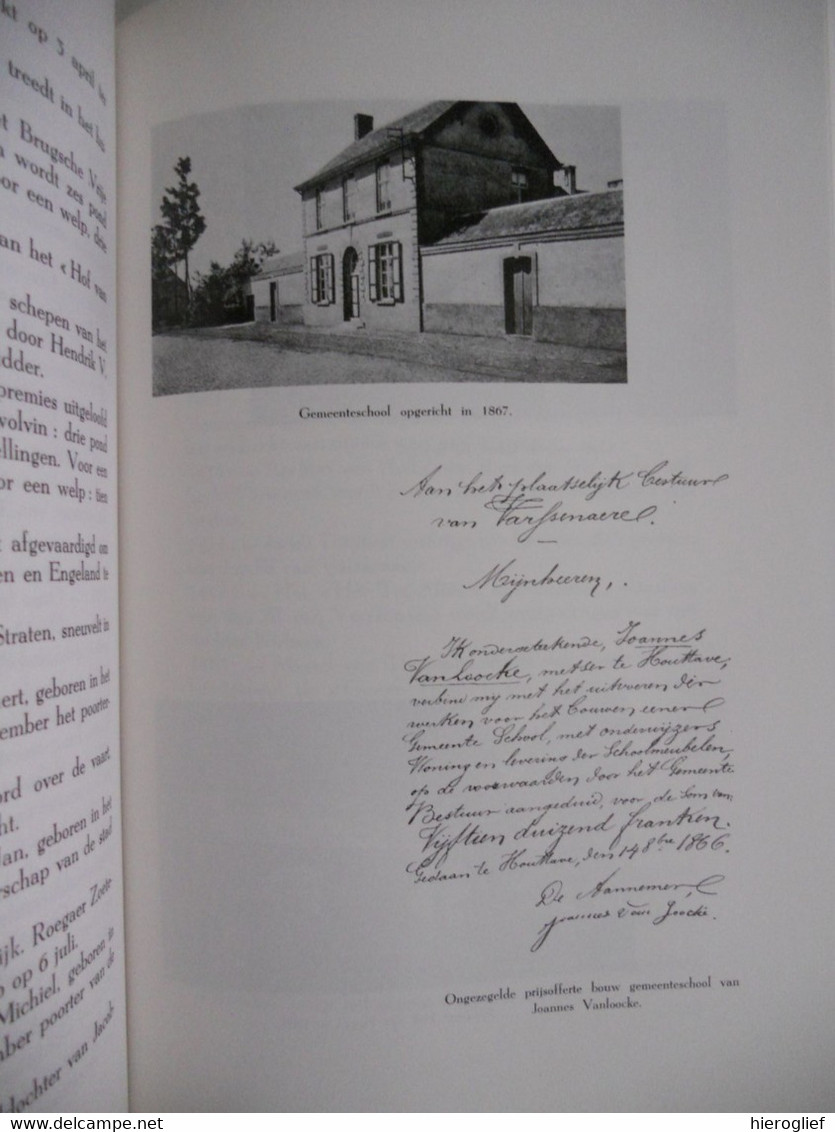 kt op 3 april
treedt in het
Brugsche Vrije
wordt zes pond
oor een welp, drie
an het « Hof van
schepen van het
door Hendrik V.
dder.
premies uitgeloofd
wolvin : drie pond
ellingen. Voor een
or een welp : tien
t afgevaardigd om
en en Engeland te
Straten, sneuvelt in
ert, geboren in het
ember het poorter-
ord over de vaart
cht.
Jan, geboren in het
rschap van de stad
ijk. Roegaer Zoete-
op 6 juli.
Michiel, geboren in
mber poorter van de
dochter van Jacob
Gemeenteschool opgericht in 1867.
Aan het plaatselijk Bestuur
van Varssenaere.
Mijnheeren,
Ik ondergeteekende, Joannes
Vanloocke, metser te Houttave,
verbine my met het uitvoeren der
werken voor het bouwen eener
Gemeente School, met onderwijzers
Woning en levering der Schoolmeubelen,
op de voorwaarden door het Gemeente
Bestuur aangeduid, voor de Som van
Vijftien duizend franken.
Gedaan te Houttave, den 14 8bre 1866.
De Aannemer,
Joannes Van Loocke.
Ongezegelde prijsofferte bouw gemeenteschool van
Joannes Vanloocke.
hieroglief